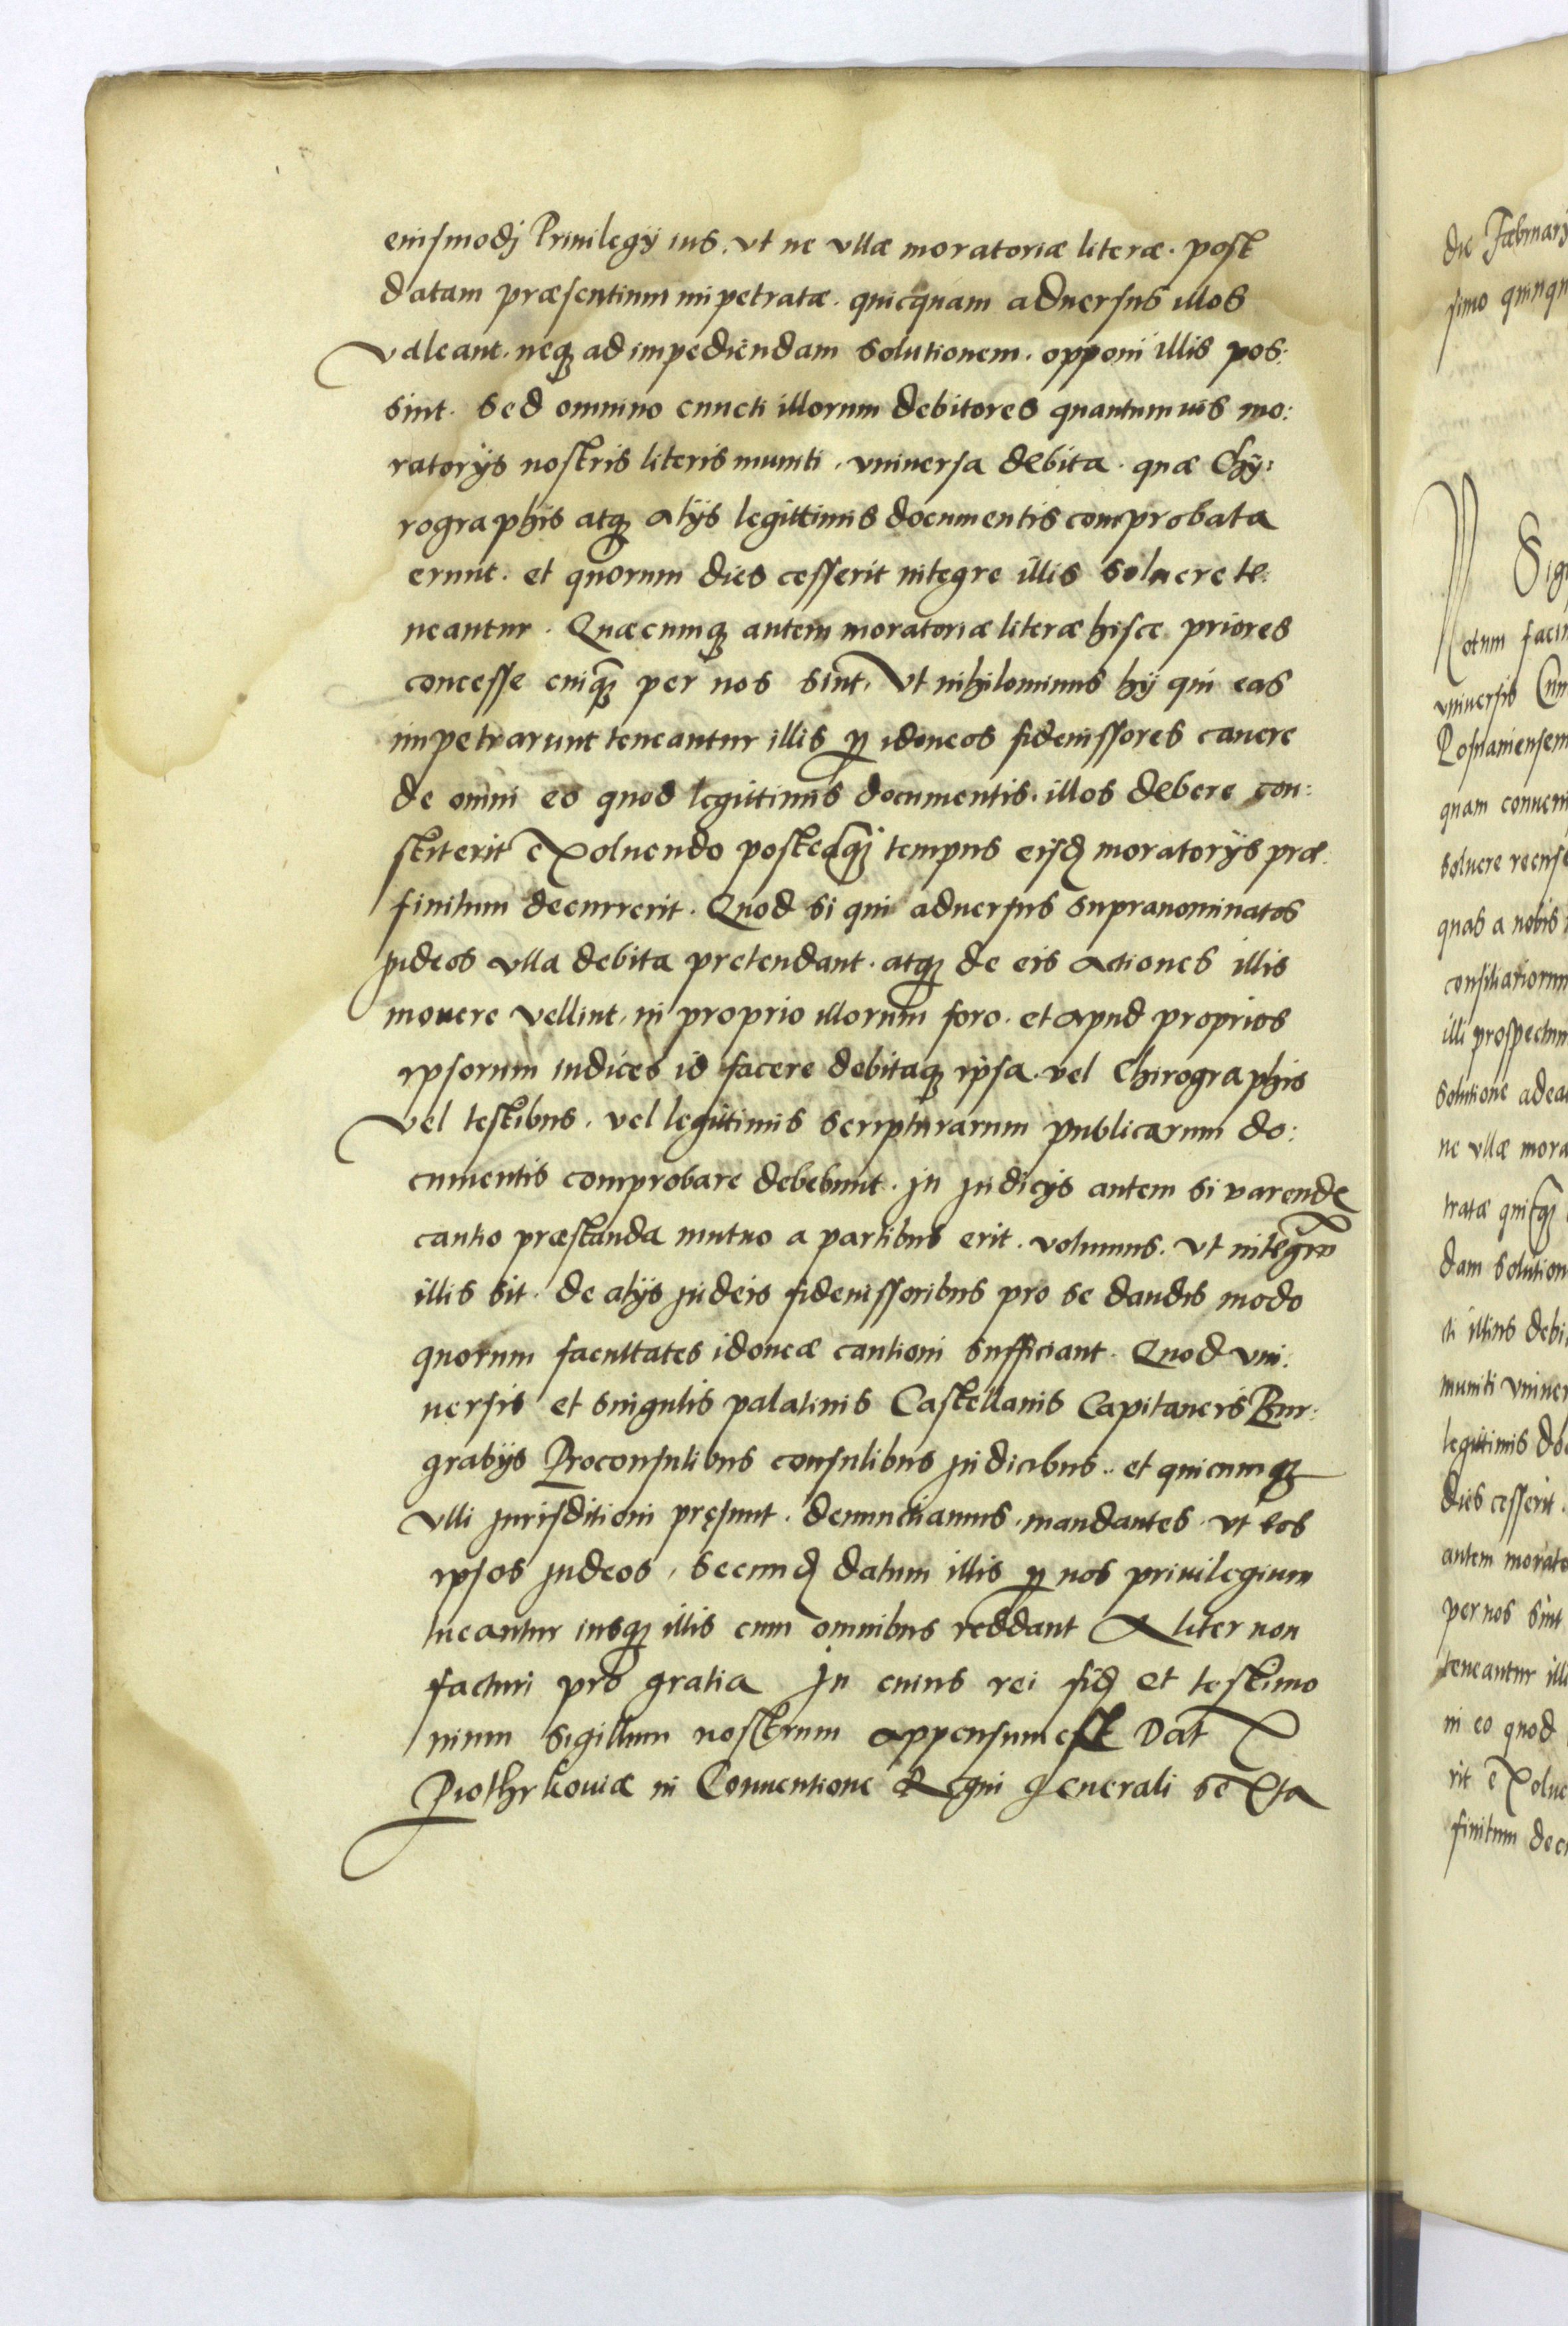 eiusmodj Priuilegÿ ius. vt ne vllæ moratoriæ literæ. post
datam præsentium impetratæ. quicquam aduersus illos
valeant. neq3 ad impediendam solutionem. opponi illis pos:
sint. Sed omnino cuncti illorum debitores quantumuis mo:
ratorÿs nostris literis muniti. vniuersa debita. quæ Chÿ:
rographis atq3 alÿs legittimis documentis comprobata
erunt. et quorum dies cesserit integre illis soluere te:
neantur. Quæcumq3 autem moratoriæ literæ hisce priores
concesse cuiq3 per nos sint, Vt nihilominus hÿ qui eas
impetrarunt teneantur illis ꝑ idoneos fideiussores cauere
de omni eo quod legittimis documentis. illos debere con:
stiterit exoluendo posteaq3 tempus eisd moratorÿs præ
finitum decurrerit. Quod si qui aduersus supranominatos
judeos vlla debita pretendant. atq3 de eis actiones illis
mouere vellint, in proprio illorum foro. et apud proprios
ipsorum iudices id facere debitaq3 ipsa. vel Chirographis
vel testibus. vel legittimis scripturarum publicarum do:
cumentis comprobare debebunt. Jn judicÿs autem si varende
cautio præstanda mutuo a partibus erit. volumus. vt integrū
illis sit. de alÿs judeis fideiussoribus pro se dandis modo
quorum facultates idoneæ cautioni sufficiant. Quod vni:
uersis et singulis palatinis Castellanis Capitaneis Bur:
grabÿs Proconsulibus consulibus judicibus.. et quicumq3
vlli jurisditioni pręsunt. denunctiamus. mandantes. vt eos
ipsos judeos, secund datum illis ꝑ nos priuilegium
tueantur iusq3 illis cum omnibus reddant Aliter non
facturi pro gratia Jn cuius rei fid et testimo
nium sigillum nostrum appensum est Dat
Piothrkouiæ in Conuentione Regni generali sexta
die Fæbruarÿ
simo quinqu
Sigi
Notum faci
vniuersis Cum
Posnaniensem
quam conueni
soluere recuse
quas a nobis
consiliariorum
illi prospectum
solutione adea
ne vllæ mora
tratæ quicq3
dam solution
cti illius debi
muniti vniuer
legittimis do
dies cesserit.
autem morato
per nos sint
teneantur illi
ni eo quod
rit exolue
finitum decu